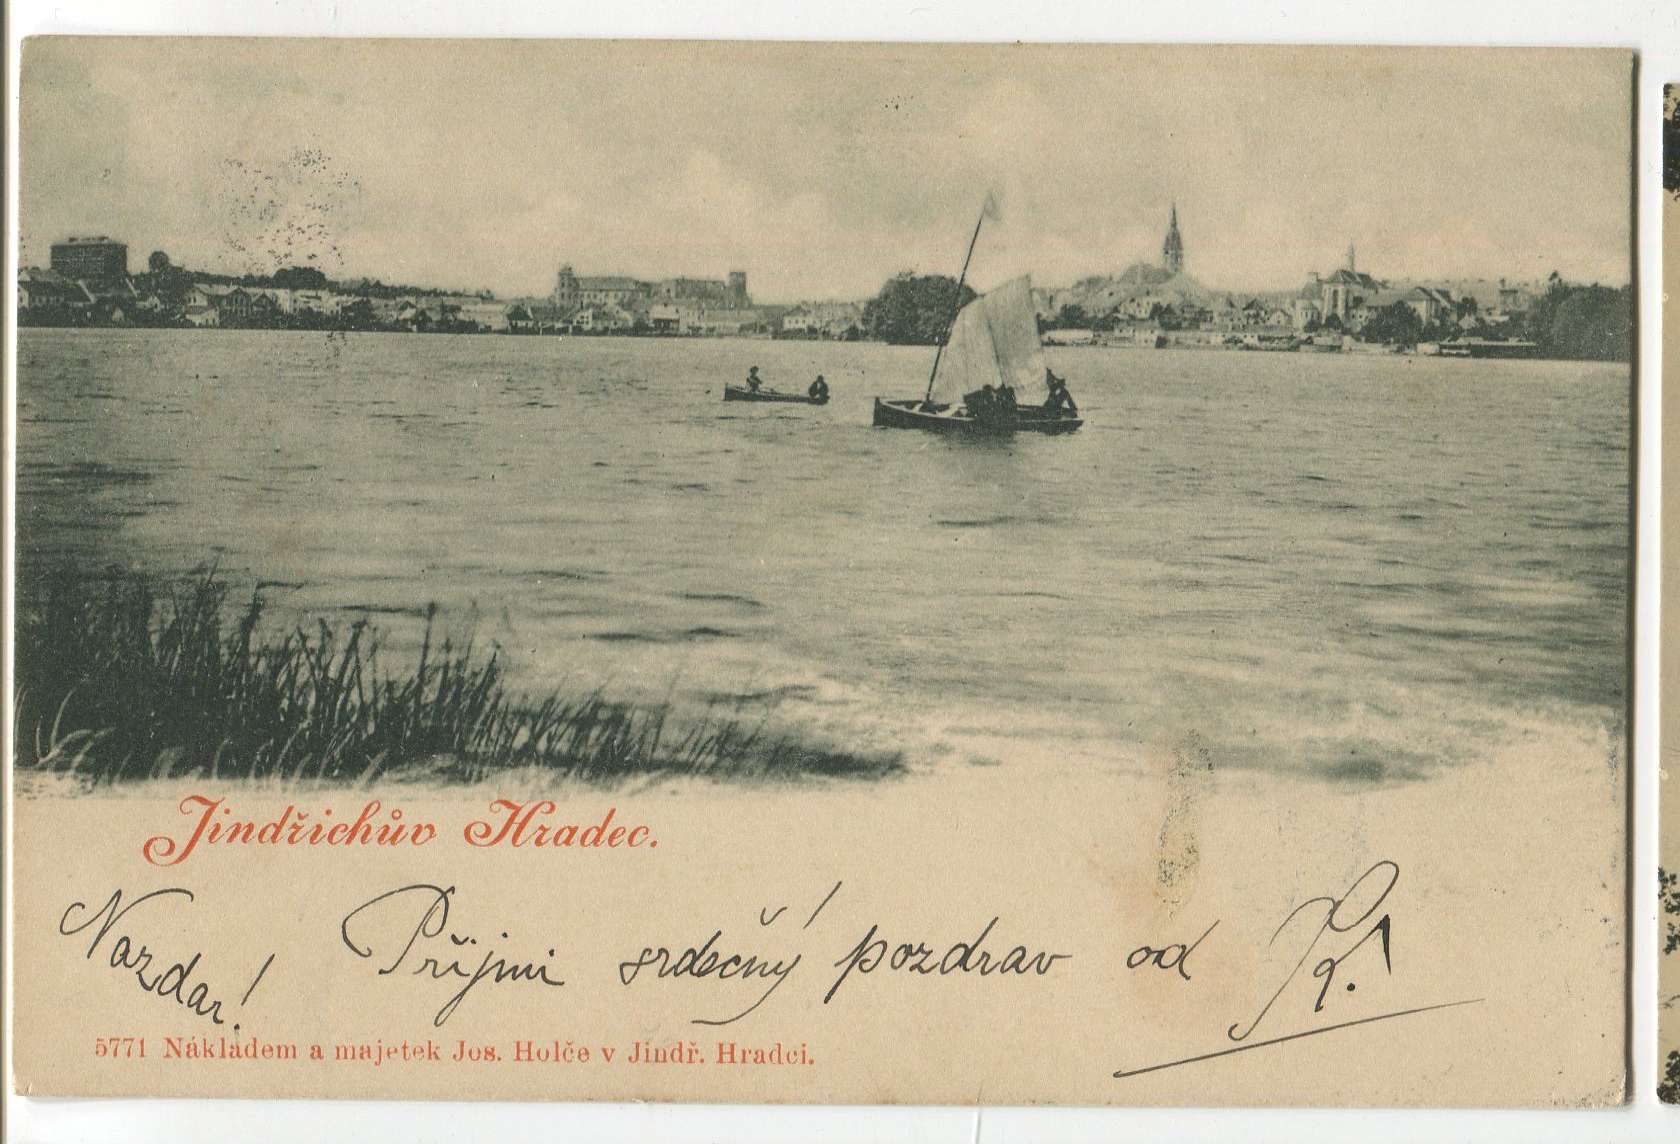 Jindřichův Hradec.
Nazdar! Přijmi srdečný pozdrav od
5771 Nákladem a majetek Jos. Holče v Jindř. Hradci.